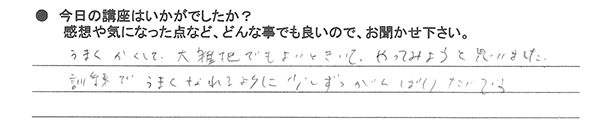 ● 今日の講座はいかがでしたか？
感想や気になった点など、どんな事でも良いので、お聞かせ下さい。
うまくかくして、大雑把でもよいときいて、やってみようと思いました。
訓練でうまくなれるように少しずつがんばりたいです